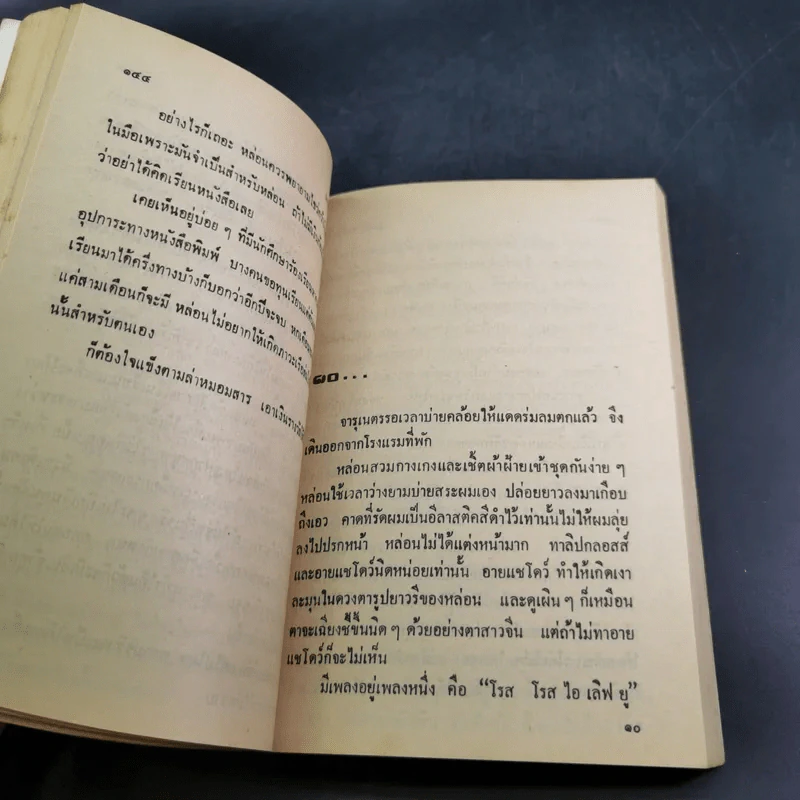 ๑๔๔
อย่างไรก็เถอะ หล่อนควรพยายาม
ในมือเพราะมันจำเป็นสำหรับหล่อน ถ้าไม่
ว่าอย่าได้คิดเรียนหนังสือเลย
เคยเห็นอยู่บ่อย ๆ ที่มีนักศึกษาร้อง
อุปการะทางหนังสือพิมพ์ บางคนขอทุนเรียน
เรียนมาได้ครึ่งทางบ้างก็บอกว่าอีกปีจะจบ หกเดือน
แค่สามเดือนก็จะมี หล่อนไม่อยากให้เกิดภาวะ
นั้นสำหรับตนเอง
ก็ต้องใจแข็งตามล่าหมอมสาร เอาเงิน
๑๐...
จารุเนตรรอเวลาบ่ายคล้อยให้แดดร่มลมตกแล้ว จึง
เดินออกจากโรงแรมที่พัก
หล่อนสวมกางเกงและเชิ้ตผ้าฝ้ายเข้าชุดกันง่าย ๆ
หล่อนใช้เวลาว่างยามบ่ายสระผมเอง ปล่อยยาวลงมาเกือบ
ถึงเอว คาดที่รัดผมเป็นอีลาสติคสีดำไว้เท่านั้นไม่ให้ผมลุ่ย
ลงไปปรกหน้า หล่อนไม่ได้แต่งหน้ามาก ทาลิปกลอสส์
และอายแชโดว์นิดหน่อยเท่านั้น อายแชโดว์ ทำให้เกิดเงา
ละมุนในดวงตารูปยาวรีของหล่อน และดูเผิน ๆ ก็เหมือน
ตาจะเฉียงชี้ขึ้นนิด ๆ ด้วยอย่างตาสาวจีน แต่ถ้าไม่ทาอาย
แชโดว์ก็จะไม่เห็น
มีเพลงอยู่เพลงหนึ่ง คือ “โรส โรส ไอ เลิฟ ยู”
๑๐